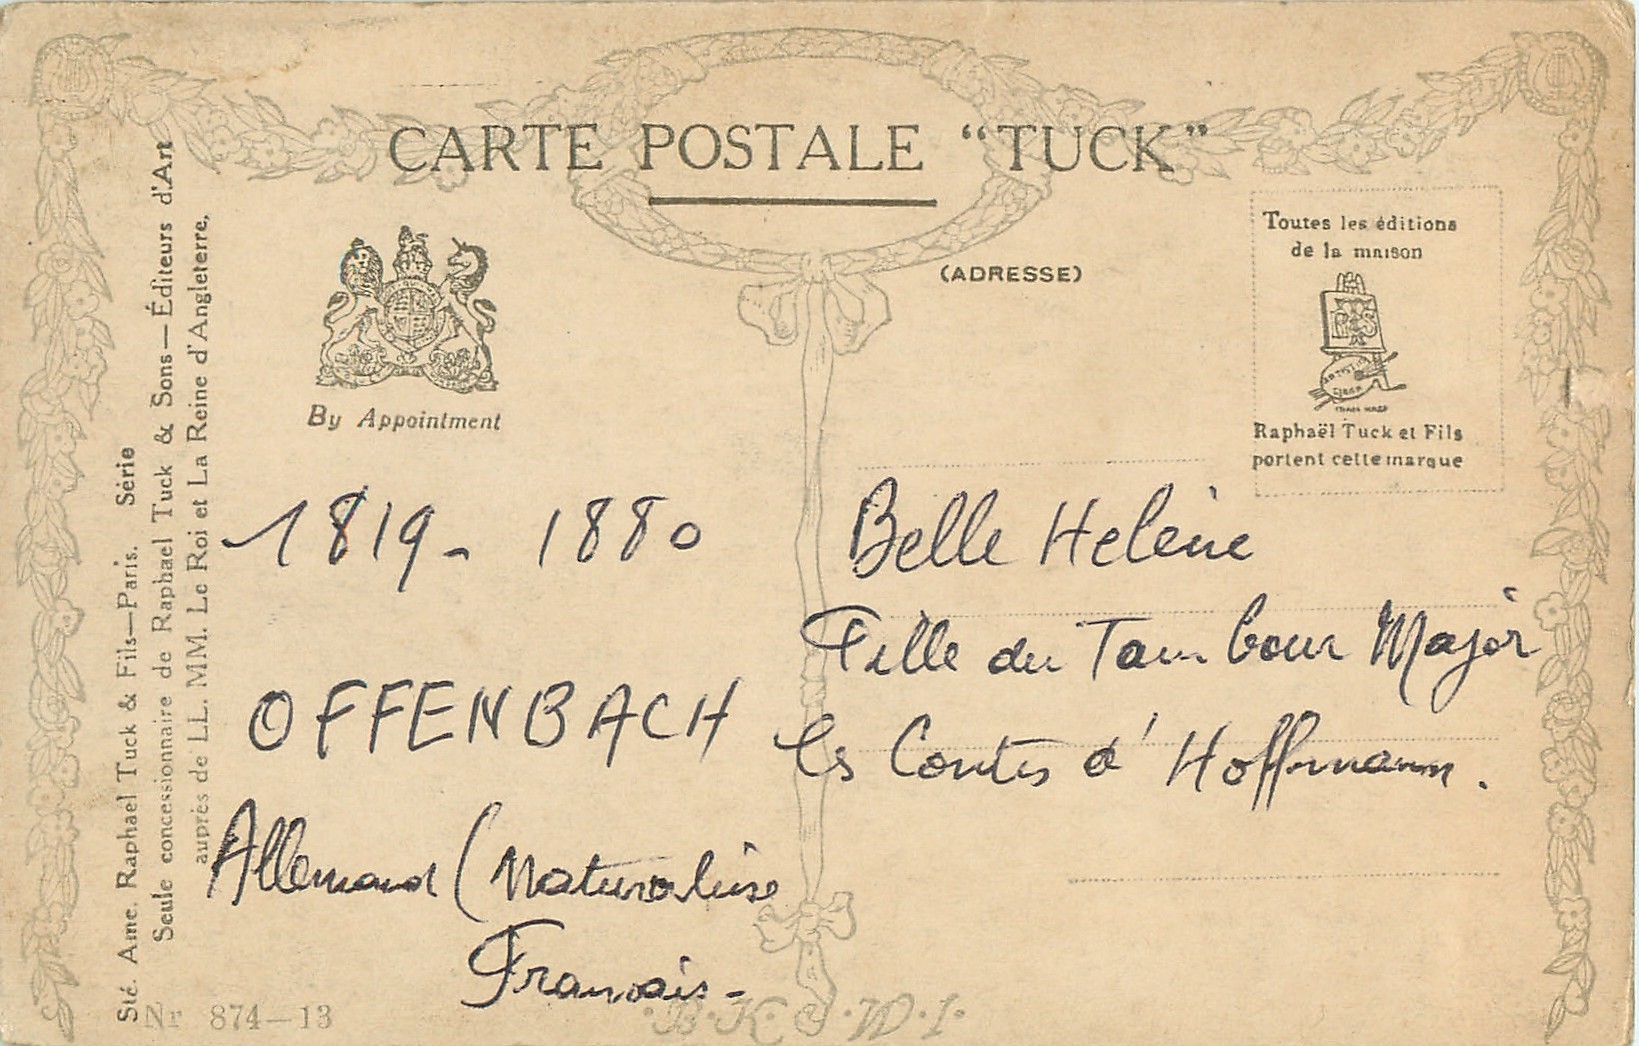 CARTE POSTALE “TUCK”
By Appointment
(ADRESSE)
Toutes les éditions
de la maison
Raphaël Tuck et Fils
portent cette marque
Sté. Ame. Raphael Tuck & Fils—Paris. Série
Seule concessionnaire de Raphael Tuck & Sons—Éditeurs d'Art
auprès de LL. MM. Le Roi et La Reine d'Angleterre.
1819 - 1880
OFFENBACH
Allemand (Naturalisé
Français -
Belle Helène
Fille du Tambour Major
les Contes d' Hoffmann.
Nr 874—13
·B·K·W·I·